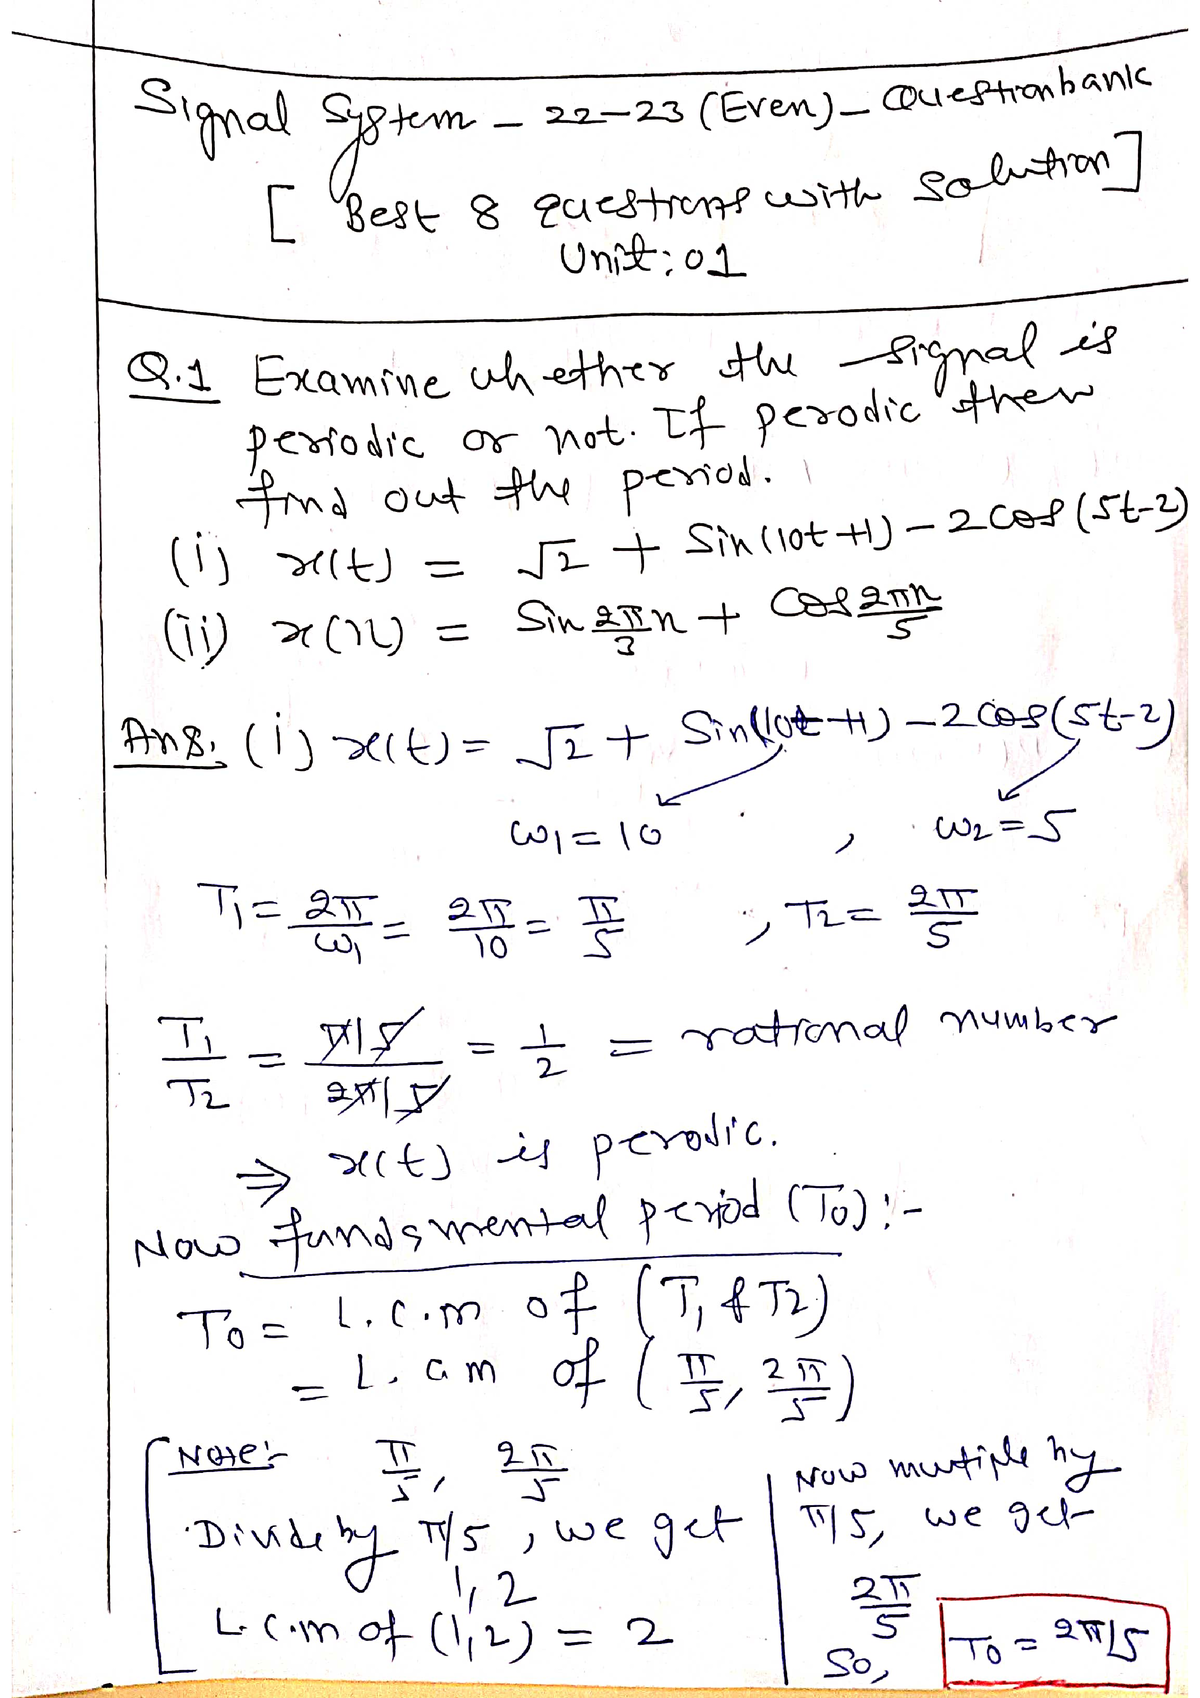 Signal System - 22-23 (Even) - Questionbank
[Best 8 questions with solution]
Unit: 01
Q.1 Examine whether the signal is
periodic or not. If perodic then
find out the period.
(i) x(t) = √2 + Sin(10t+1) - 2cos(5t-2)
(ii) x(n) = Sin 2π/3 n + Cos 2πn/5
Ans: (i) x(t) = √2 + Sin(10t+1) - 2cos(5t-2)
ω1 = 10 , ω2 = 5
T1 = 2π/ω1 = 2π/10 = π/5 ; T2 = 2π/5
T1/T2 = π/5 / 2π/5 = 1/2 = rational number
⇒ x(t) is perodic.
Now fundamental period (To):-
To = L.C.m of (T1 & T2)
= L.cm of (π/5, 2π/5)
Note:- π/5, 2π/5
Divide by π/5, we get
1, 2
L.C.m of (1,2) = 2
Now multiple by
π/5, we get
2π/5
So, To = 2π/5